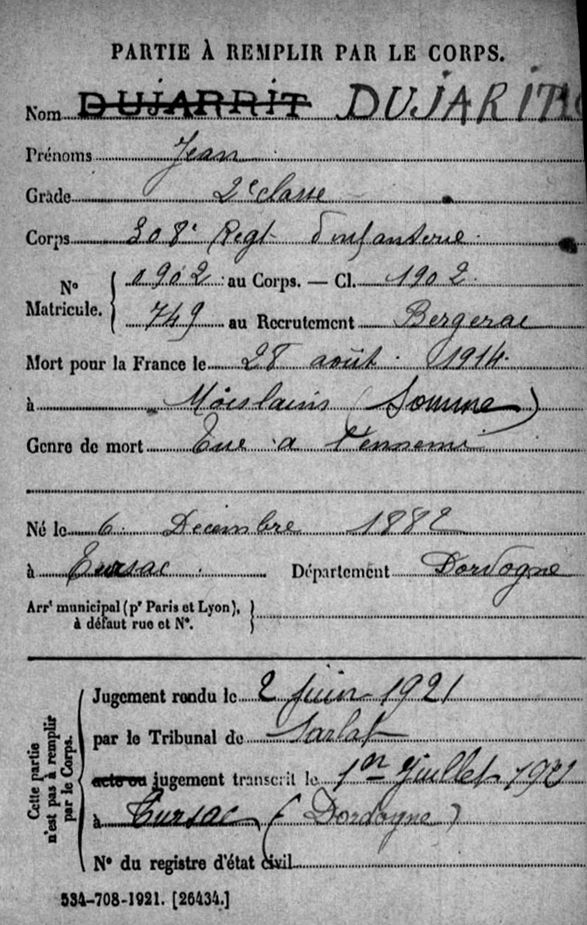 PARTIE À REMPLIR PAR LE CORPS.
Nom DUJARRIT DUJARIT
Prénoms Jean
Grade 2e classe
Corps 308e Regt d'infanterie
No Matricule. 0902 au Corps. — Cl. 1902
749 au Recrutement Bergerac
Mort pour la France le 28 août 1914
à Moislains (Somme)
Genre de mort Tué a l'ennemi
Né le 6 Decembre 1882
à Tursac Département Dordogne
Arrt municipal (pr Paris et Lyon),
à défaut rue et No.
Cette partie
n'est pas à remplir
par le Corps.
Jugement rendu le 2 juin 1921
par le Tribunal de Sarlat
acte ou jugement transcrit le 1er Juillet 1921
à Tursac (Dordogne)
No du registre d'état civil
534-708-1921. [26434.]